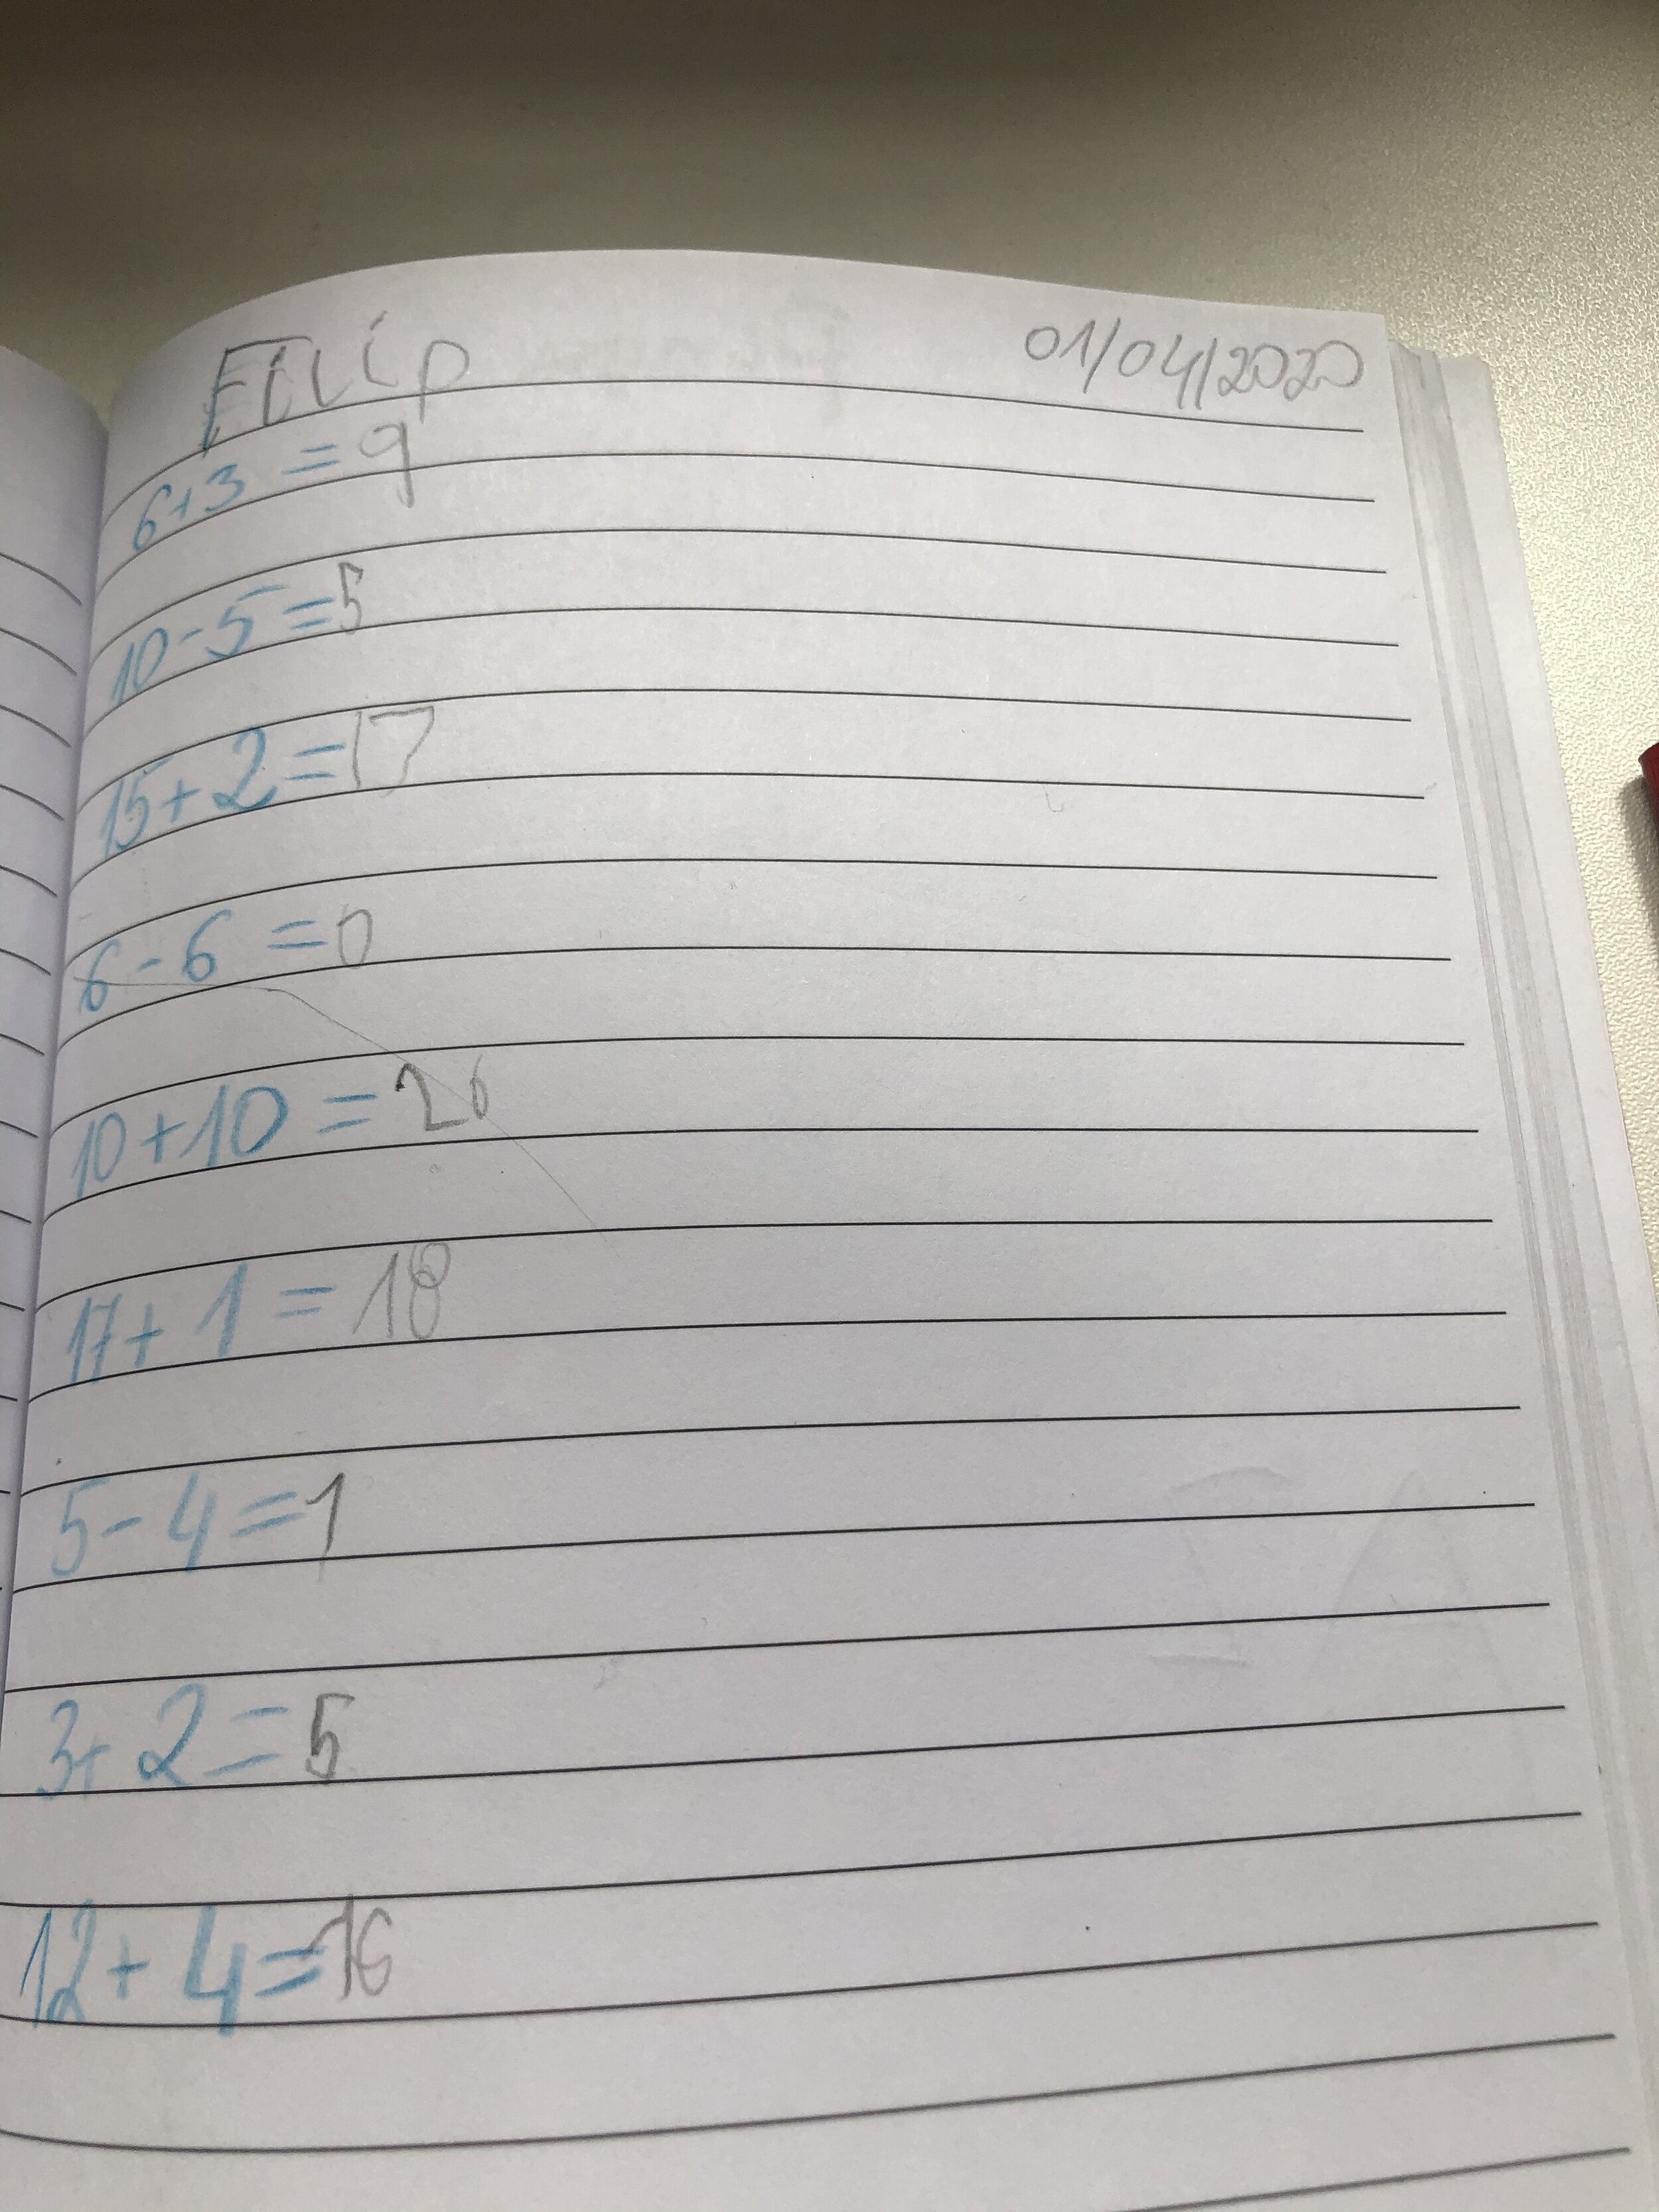 Filip 01/04/2020
6+3=9
10-5=5
15+2=17
6-6=0
10+10=20
17+1=18
5-4=1
3+2=5
12+4=16